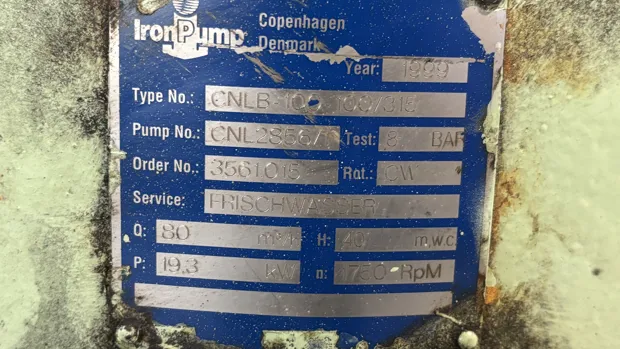 IronPump
Copenhagen
Denmark
Year: 1999
Type No.: CNLB-100
Pump No.: Test: BAR
Order No.: 3561015 Rot.: CW
Service: FRISCHWASSER
Q: 80 m³/h H: m.w.c.
P: 19.3 kW n: 1760 RpM